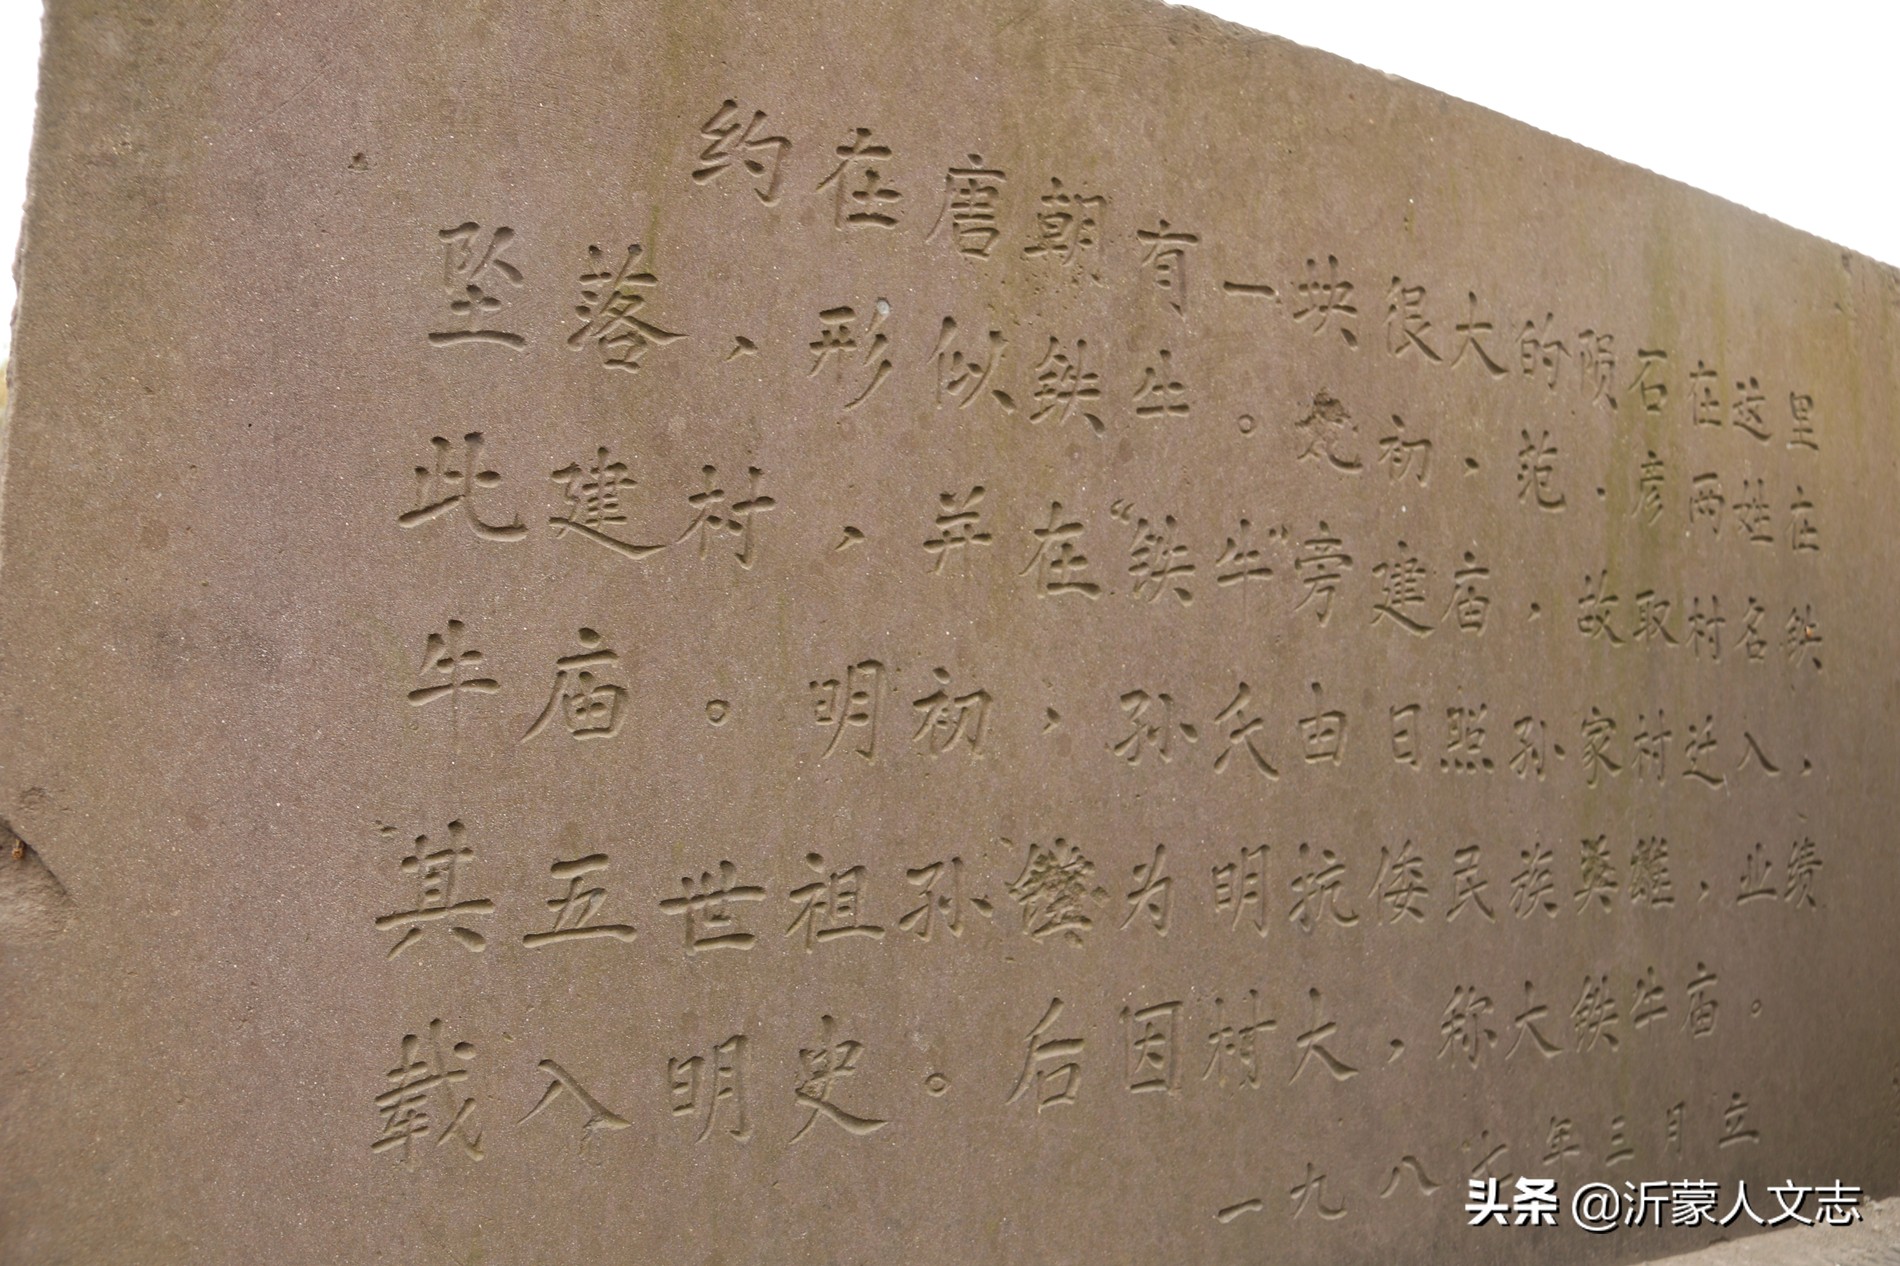 约在唐朝有一块很大的陨石在这里
坠落，形似铁牛。元初，范、彦两姓在
此建村，并在“铁牛”旁建庙，故取村名铁
牛庙。明初，孙氏由日照孙家村迁入，
其五世祖孙镗为明抗倭民族英雄，业绩
载入明史。后因村大，称大铁牛庙。
一九八六年三月立
头条 @沂蒙人文志